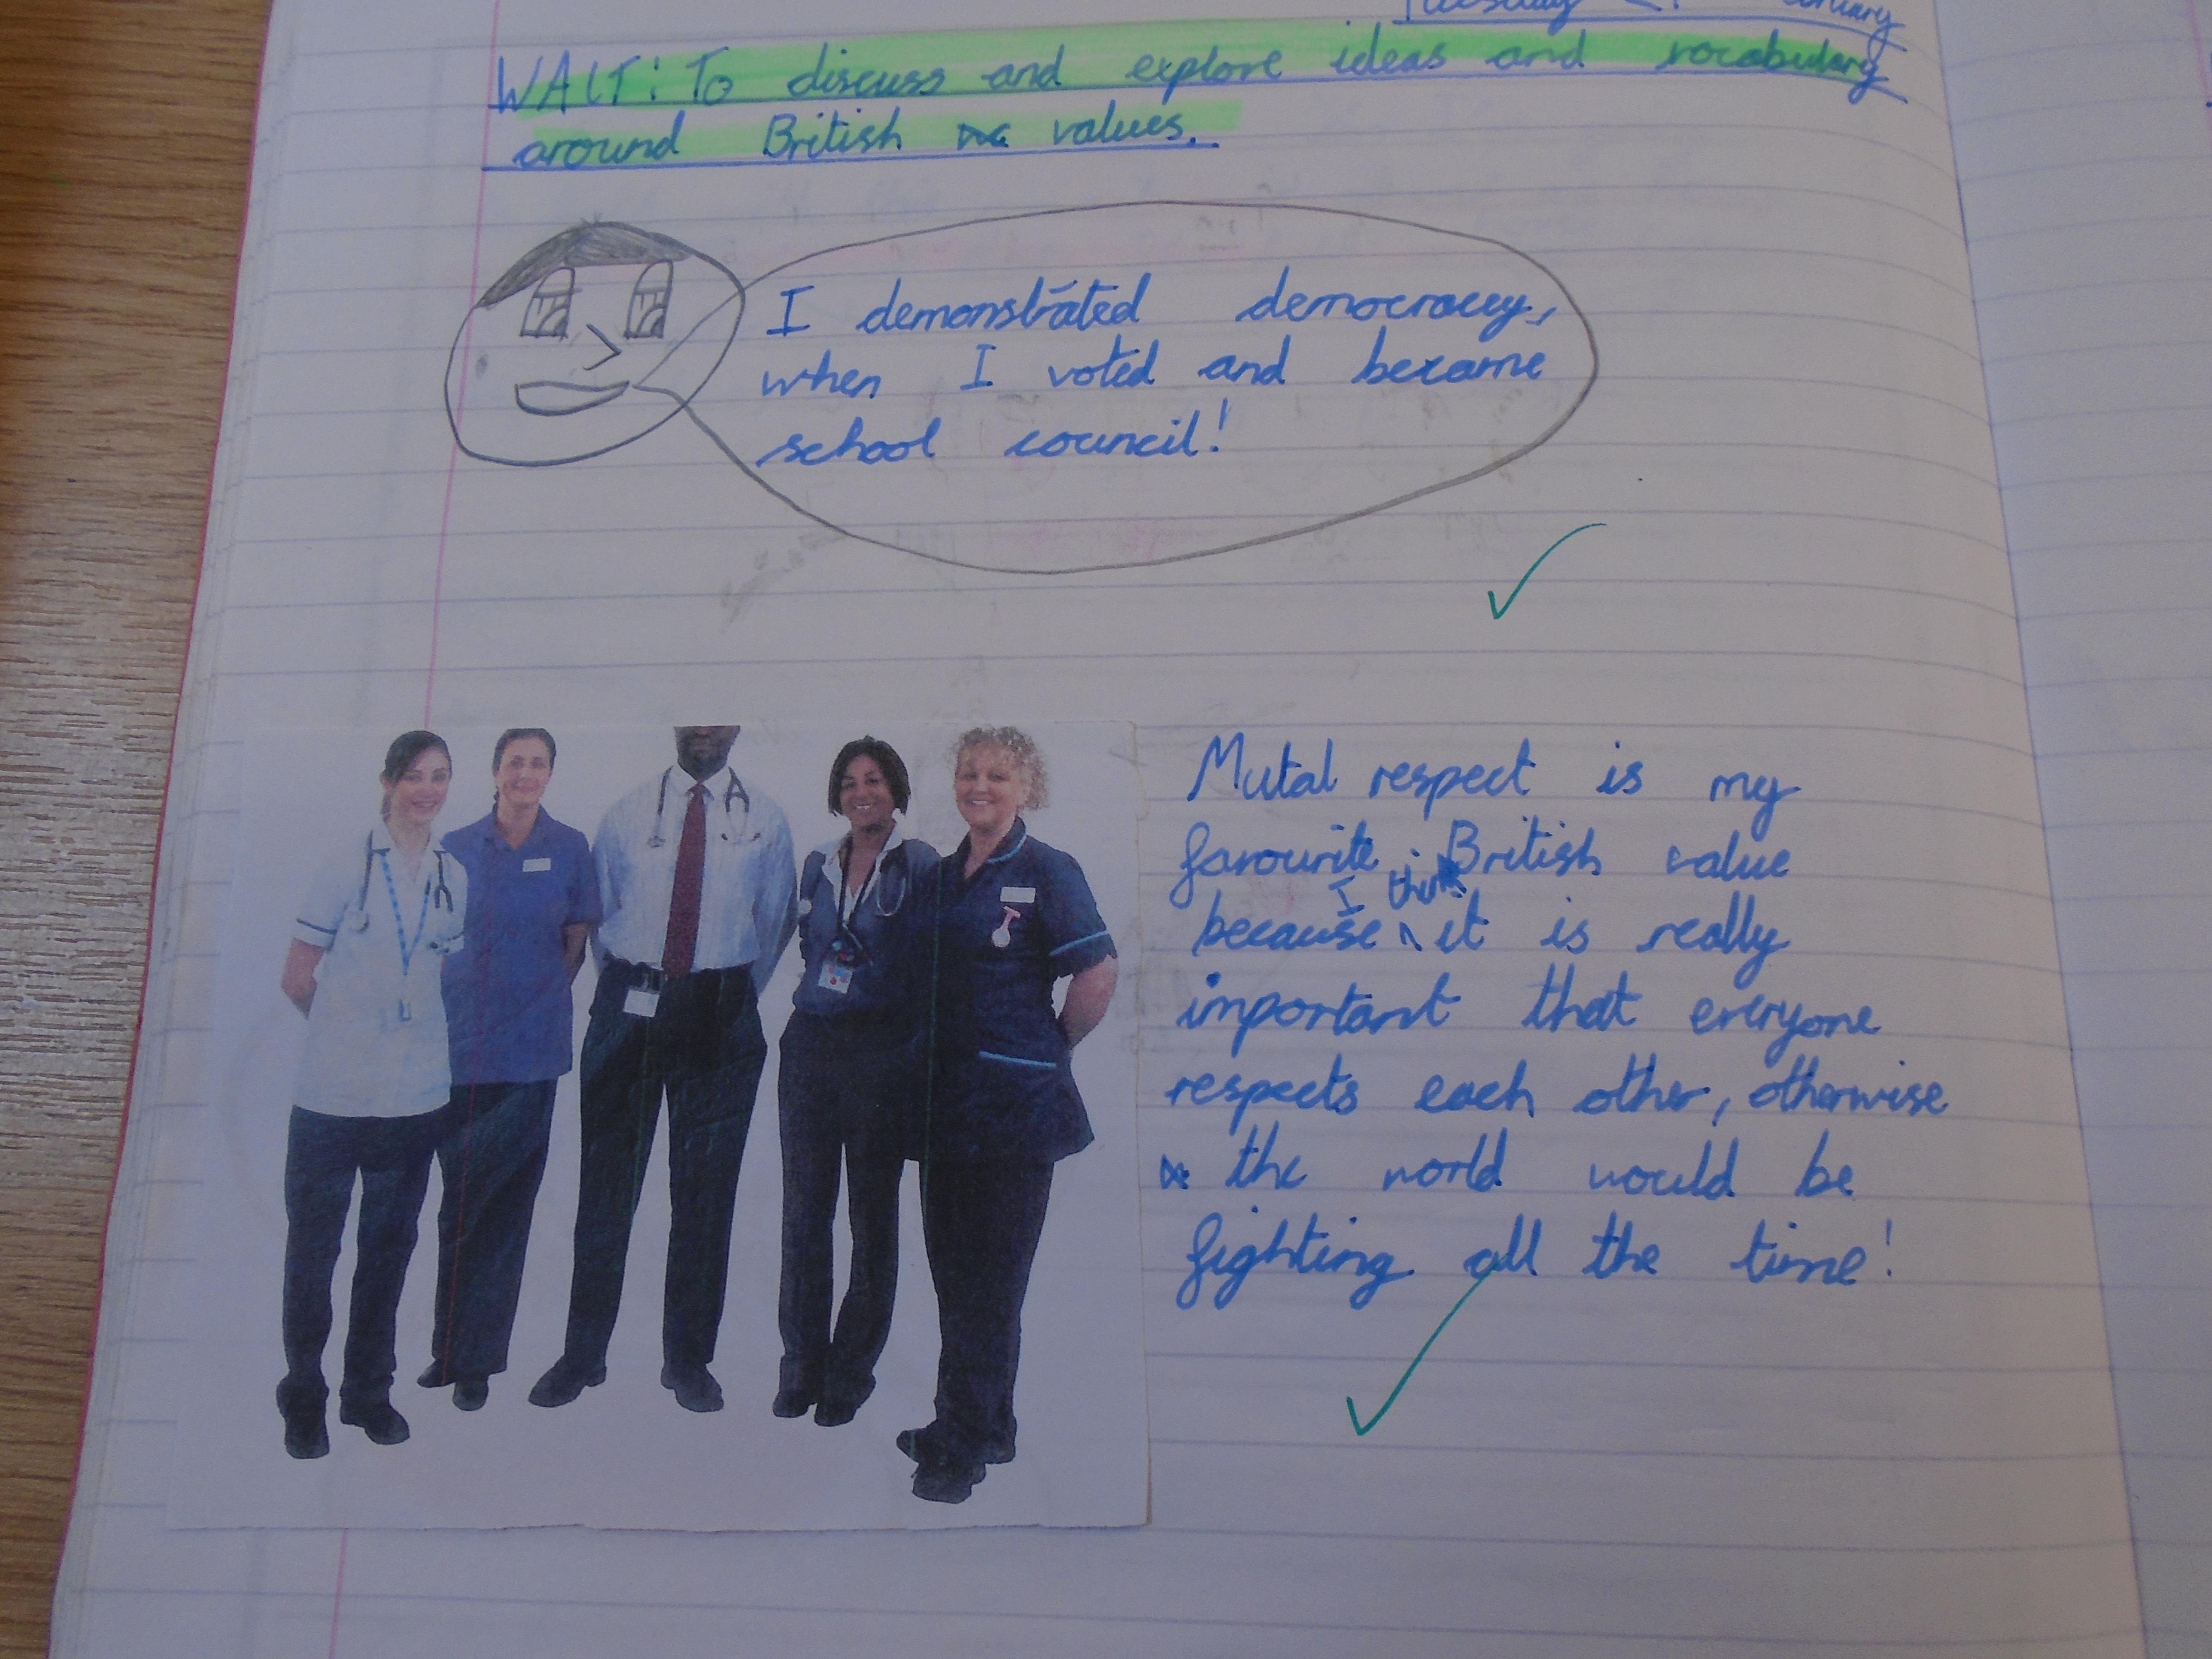 Tuesday
WALT: To discuss and explore ideas and vocabulary
around British values.
I demonstrated democracy,
when I voted and became
school council!
Mutal respect is my
favourite British value
because I think it is really
important that everyone
respects each other, otherwise
the world would be
fighting all the time!